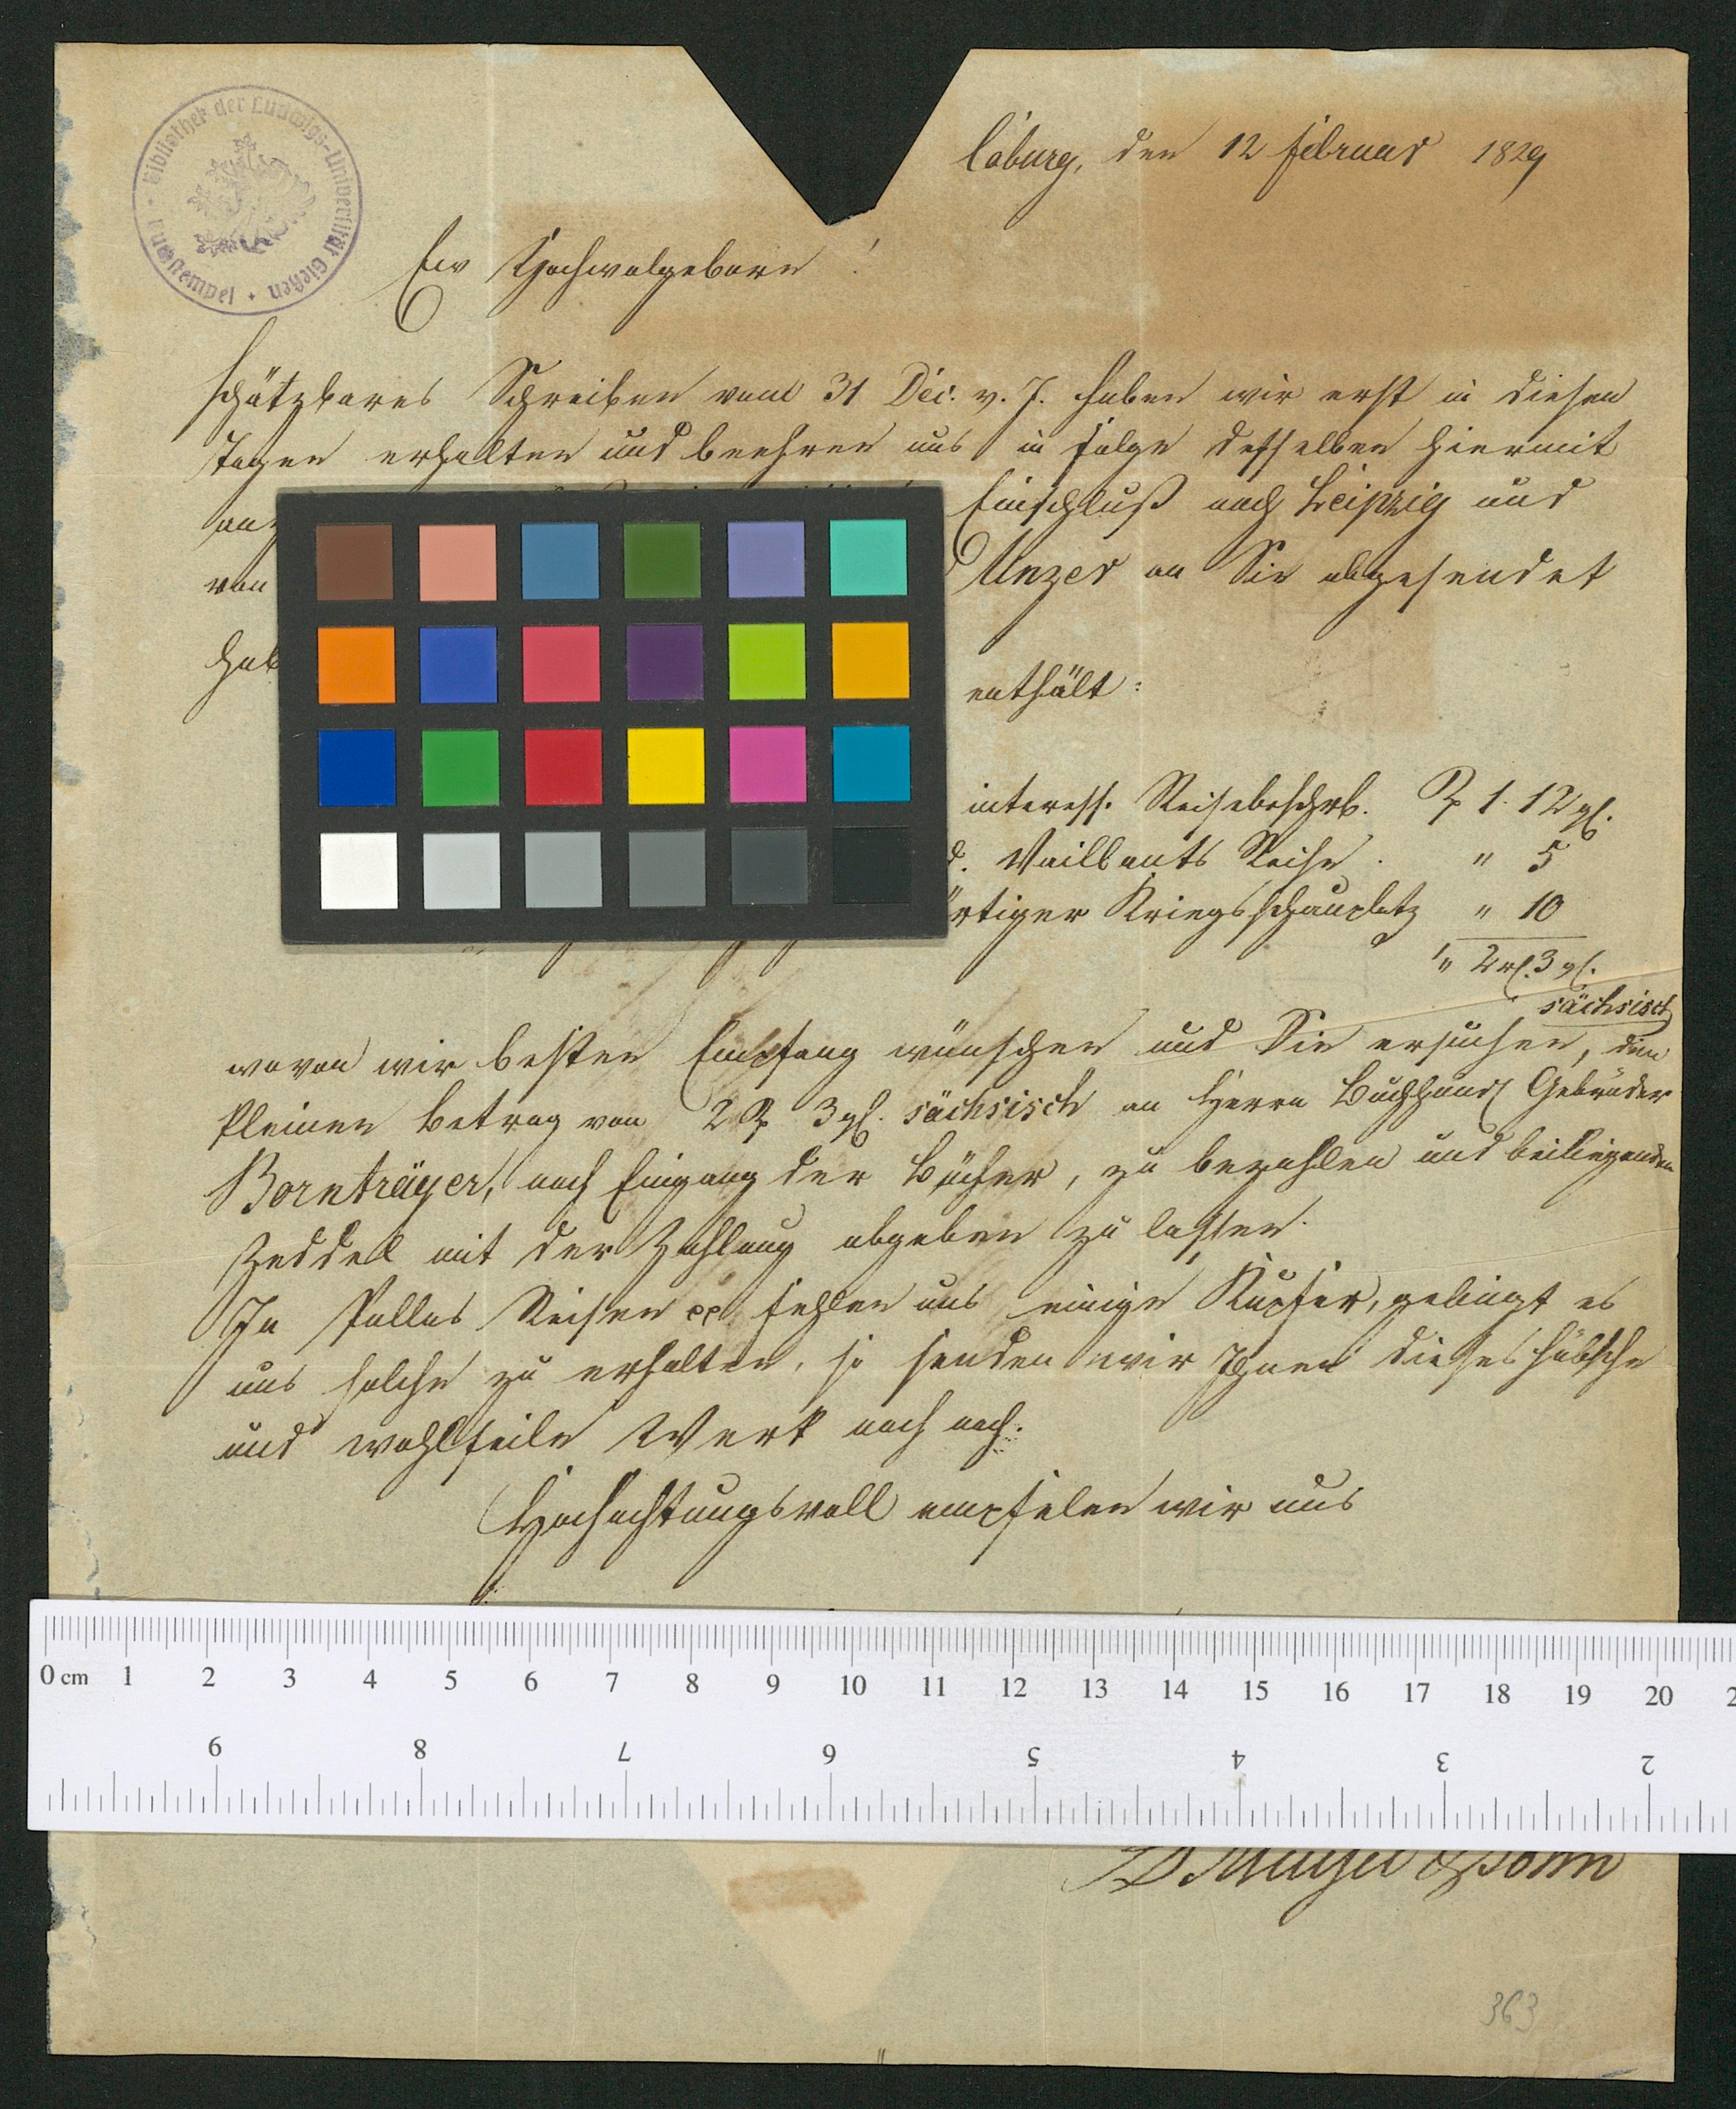 Bibliothek der Ludwigs-Universität Gießen
Coburg, den 12 Februar 1829
Ew Hochwolgeborn!
schätzbares Schreiben vom 31 Dec. v. J. haben wir erst in diesen
Tagen erhalten und beehren uns in Folge desselben hiermit
Einschluß nach Leipzig und
von Unzer an Sie abgesendet
hab
enthält:
interess. Reisebeschrb. Rthl 1. 12 gl.
d. Vaillants Reise. " 5
ärtiger Kriegsschauplatz " 10
" 2 rl. 3 gl.
sächsisch
wovon wir besten Empfang wünschen und Sie ersuchen, den
kleinen Betrag von 2 Rthl 3 gl. sächsisch an Herrn Buchhändl Gebrüder
Bornträger, nach Eingang der Bücher, zu bezahlen und beiliegenden
Zeddel mit der Zahlung abgeben zu lassen.
In Pallas Reisen pp fehlen uns einige Kupfer, gelingt es
uns solche zu erhalten, so senden wir Ihnen dieses hübsche
und wohlfeile Werk noch nach.
Hochachtungsvoll empfelen wir uns
0 cm 1 2 3 4 5 6 7 8 9 10 11 12 13 14 15 16 17 18 19 20
9 8 7 6 5 4 3 2
& Sohn
363